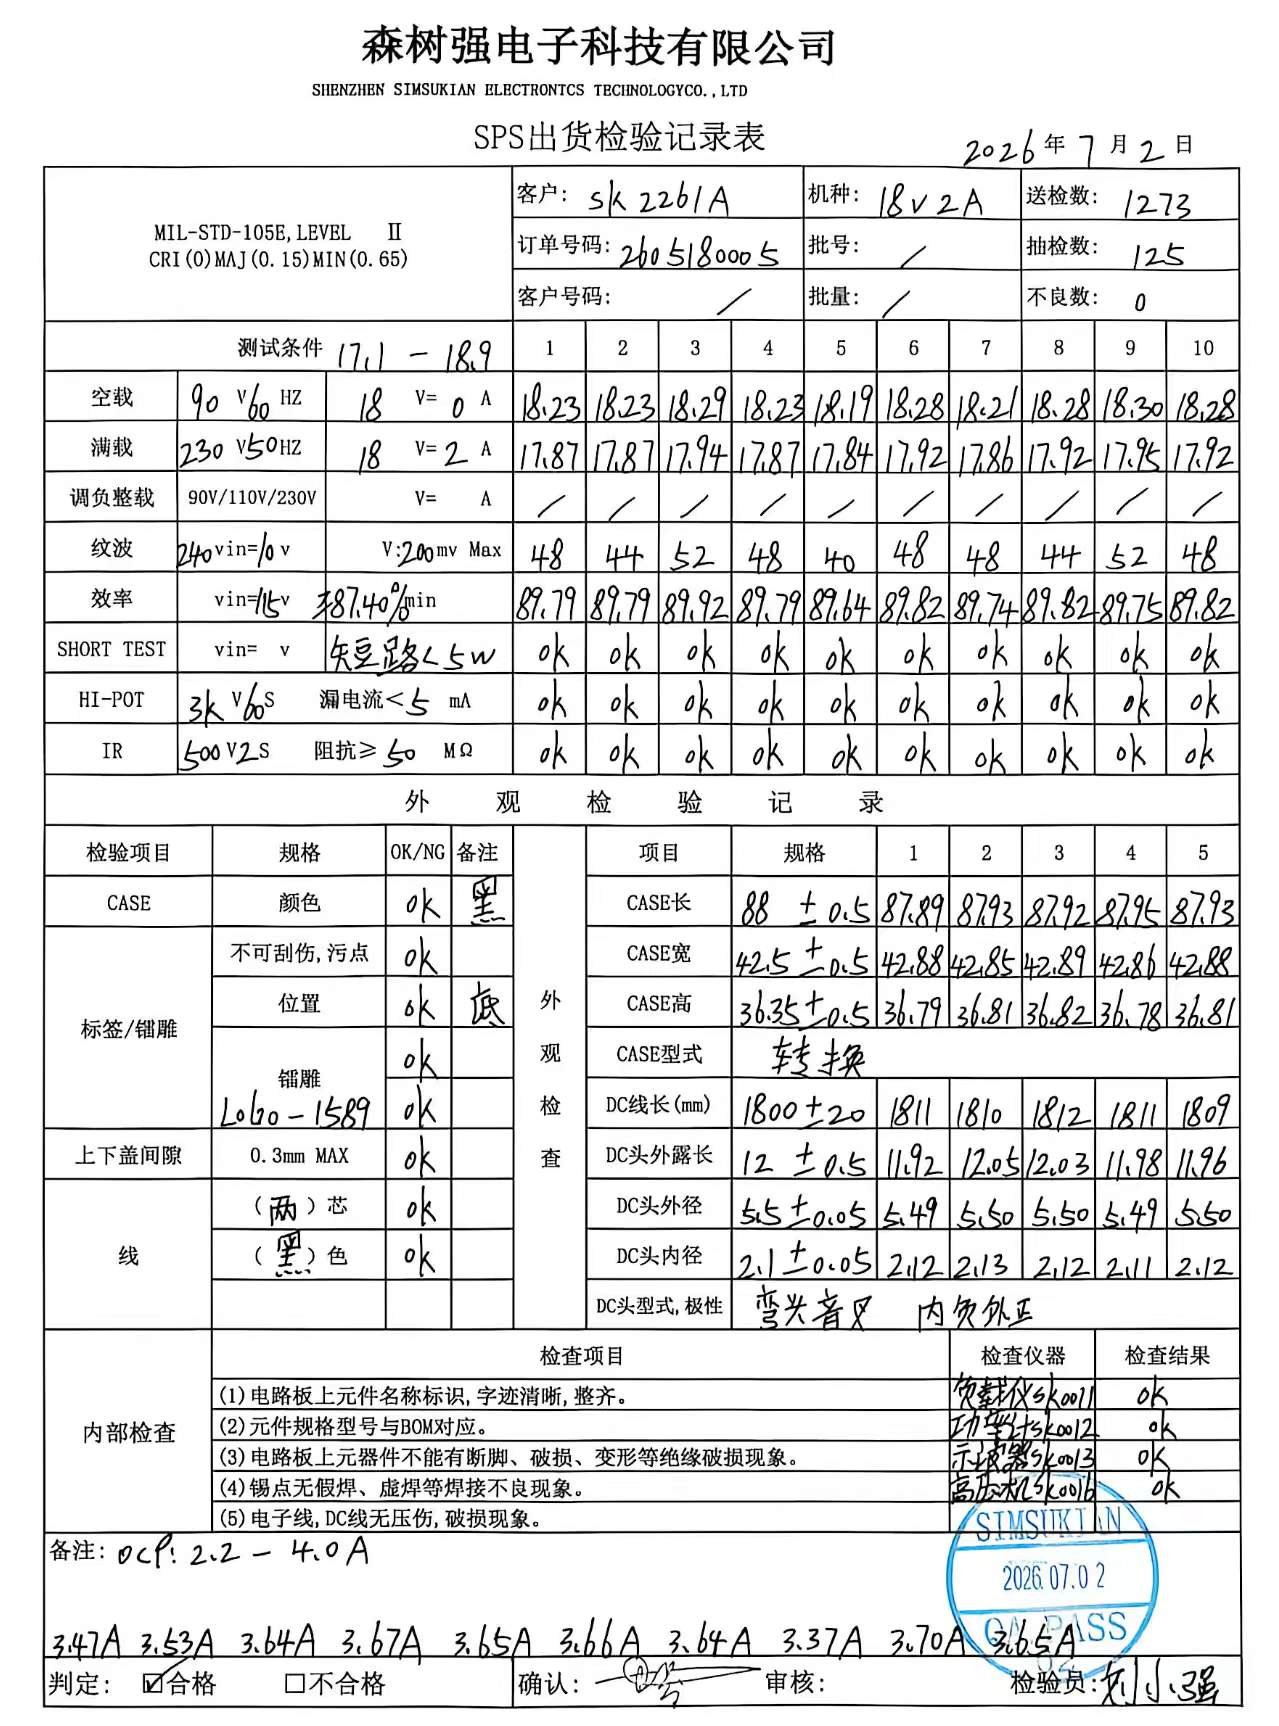 森树强电子科技有限公司
SHENZHEN SIMSUKIAN ELECTRONTCS TECHNOLOGYCO.,LTD
SPS出货检验记录表
2026年7月2日
MIL-STD-105E,LEVEL Ⅱ
CRI(0)MAJ(0.15)MIN(0.65)
客户: sk2261A 机种: 18V2A 送检数: 1273
订单号码: 2605180005 批号: / 抽检数: 125
客户号码: / 批量: / 不良数: 0
测试条件 17.1 - 18.9 1 2 3 4 5 6 7 8 9 10
空载 90 V 60 HZ 18 V= 0 A 18.23 18.23 18.29 18.23 18.19 18.28 18.21 18.28 18.30 18.28
满载 230 V 50 HZ 18 V= 2 A 17.87 17.87 17.94 17.87 17.84 17.92 17.86 17.92 17.95 17.92
调负整载 90V/110V/230V V= A / / / / / / / / / /
纹波 240 vin=10 v V:200mv Max 48 44 52 48 40 48 48 44 52 48
效率 vin=115v 87.40% min 89.79 89.79 89.92 89.79 89.64 89.82 89.74 89.82 89.75 89.82
SHORT TEST vin= v 短路<5W ok ok ok ok ok ok ok ok ok ok
HI-POT 3k V 60 S 漏电流<5 mA ok ok ok ok ok ok ok ok ok ok
IR 500 V 2 S 阻抗≥50 MΩ ok ok ok ok ok ok ok ok ok ok
外观检验记录
检验项目 规格 OK/NG 备注 项目 规格 1 2 3 4 5
CASE 颜色 ok 黑 CASE长 88 ±0.5 87.89 87.93 87.92 87.95 87.93
不可刮伤,污点 ok CASE宽 42.5±0.5 42.88 42.85 42.89 42.86 42.88
标签/镭雕 位置 ok 底 外观检查 CASE高 36.35±0.5 36.79 36.81 36.82 36.78 36.81
镭雕 ok CASE型式 转换
LOGO-1589 ok DC线长(mm) 1800±20 1811 1810 1812 1811 1809
上下盖间隙 0.3mm MAX ok DC头外露长 12 ±0.5 11.92 12.05 12.03 11.98 11.96
线 (两)芯 ok DC头外径 5.5±0.05 5.49 5.50 5.50 5.49 5.50
(黑)色 ok DC头内径 2.1±0.05 2.12 2.13 2.12 2.11 2.12
DC头型式,极性 弯头音叉 内负外正
内部检查 检查项目 检查仪器 检查结果
(1)电路板上元件名称标识,字迹清晰,整齐。 负载仪sk0011 ok
(2)元件规格型号与BOM对应。 功率计sk0012 ok
(3)电路板上元器件不能有断脚、破损、变形等绝缘破损现象。 示波器sk0013 ok
(4)锡点无假焊、虚焊等焊接不良现象。 高压机sk0016 ok
(5)电子线,DC线无压伤,破损现象。
SIMSUKIAN
备注: OCP: 2.2 - 4.0A
2026.07.02
QA PASS
02
3.47A 3.53A 3.64A 3.67A 3.65A 3.66A 3.64A 3.37A 3.70A 3.65A
判定: ☑合格 □不合格 确认: 审核: 检验员:刘小强